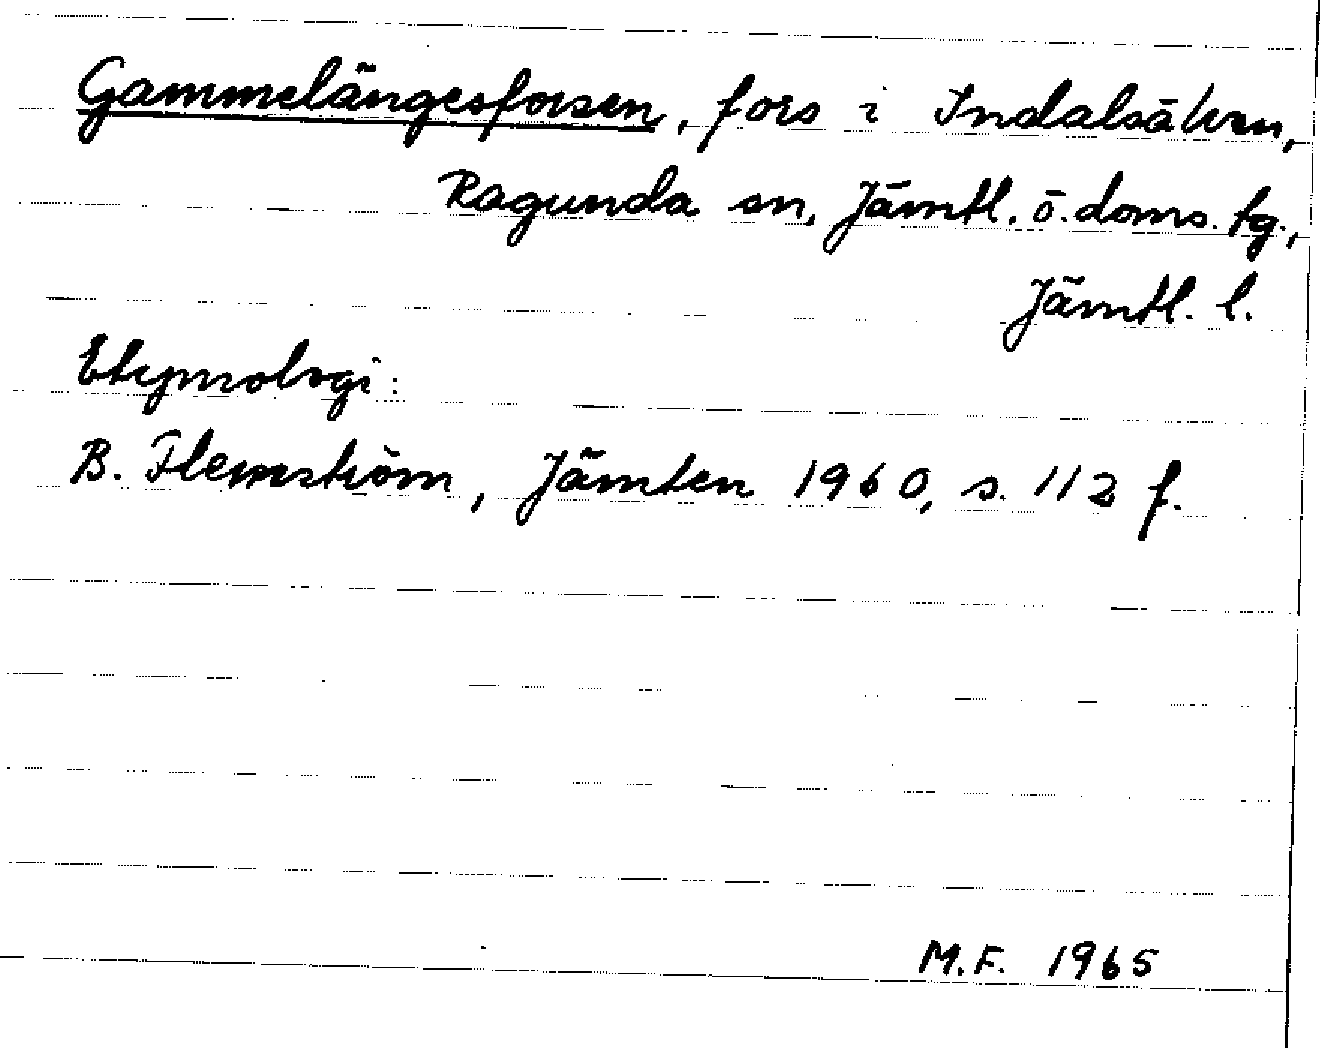 Gammelängesforsen, fors i Indalsälven,
Ragunda sn, Jämtl. ö. doms. tg.,
Jämtl. l.
Etymologi:
B. Flemström, Jämten 1960, s. 112 f.
M.F. 1965